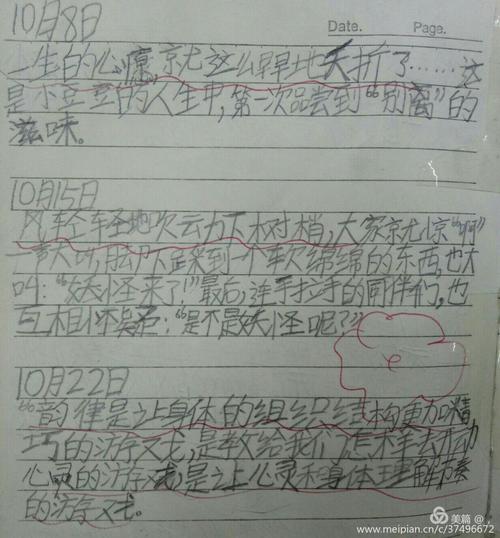 10月8日
Date. Page.
一生的心愿,就这么早早地夭折了……这
是小豆豆的人生中,第一次品尝到“别离”的
滋味。
10月15日
风轻轻地吹动下树梢,大家就惊“啊”
一声大叫,脚下踩到一个软绵绵的东西,也大
叫:“妖怪来了!”最后,连手拉手的同伴们,也
互相怀疑:“是不是妖怪呢?”
10月22日
“韵律是让身体的组织结构更加精
巧的游戏,是教给我们怎样去开动
心灵的游戏,是让心灵和身体理解节奏
的游戏。
美篇
www.meipian.cn/c/37496672